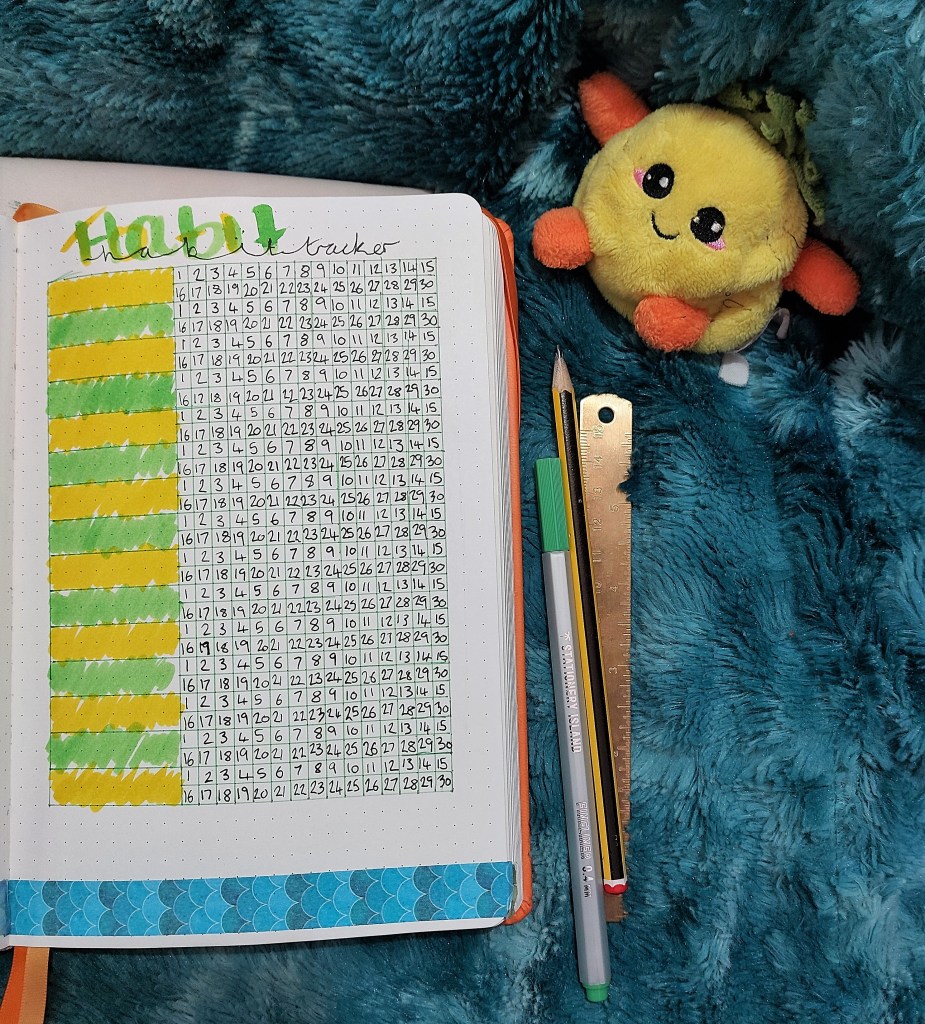 Habit
habit tracker
1 2 3 4 5 6 7 8 9 10 11 12 13 14 15
16 17 18 19 20 21 22 23 24 25 26 27 28 29 30
1 2 3 4 5 6 7 8 9 10 11 12 13 14 15
16 17 18 19 20 21 22 23 24 25 26 27 28 29 30
1 2 3 4 5 6 7 8 9 10 11 12 13 14 15
16 17 18 19 20 21 22 23 24 25 26 27 28 29 30
1 2 3 4 5 6 7 8 9 10 11 12 13 14 15
16 17 18 19 20 21 22 23 24 25 26 27 28 29 30
1 2 3 4 5 6 7 8 9 10 11 12 13 14 15
16 17 18 19 20 21 22 23 24 25 26 27 28 29 30
1 2 3 4 5 6 7 8 9 10 11 12 13 14 15
16 17 18 19 20 21 22 23 24 25 26 27 28 29 30
1 2 3 4 5 6 7 8 9 10 11 12 13 14 15
16 17 18 19 20 21 22 23 24 25 26 27 28 29 30
1 2 3 4 5 6 7 8 9 10 11 12 13 14 15
16 17 18 19 20 21 22 23 24 25 26 27 28 29 30
1 2 3 4 5 6 7 8 9 10 11 12 13 14 15
16 17 18 19 20 21 22 23 24 25 26 27 28 29 30
1 2 3 4 5 6 7 8 9 10 11 12 13 14 15
16 17 18 19 20 21 22 23 24 25 26 27 28 29 30
1 2 3 4 5 6 7 8 9 10 11 12 13 14 15
16 17 18 19 20 21 22 23 24 25 26 27 28 29 30
1 2 3 4 5 6 7 8 9 10 11 12 13 14 15
16 17 18 19 20 21 22 23 24 25 26 27 28 29 30
1 2 3 4 5 6 7 8 9 10 11 12 13 14 15
16 17 18 19 20 21 22 23 24 25 26 27 28 29 30
1 2 3 4 5 6 7 8 9 10 11 12 13 14 15
16 17 18 19 20 21 22 23 24 25 26 27 28 29 30
1 2 3 4 5 6 7 8 9 10 11 12 13 14 15
16 17 18 19 20 21 22 23 24 25 26 27 28 29 30
STATIONERY ISLAND
FINELINER 0.4 mm